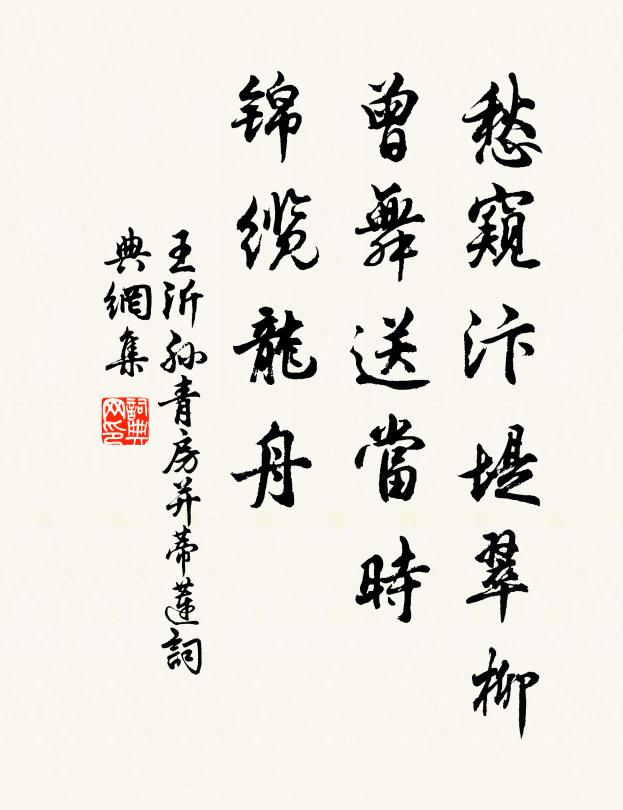 愁窺汴堤翠柳
曾舞送當時
錦纜龍舟
王沂孫青房并蒂蓮詞
典網集
詞典網印